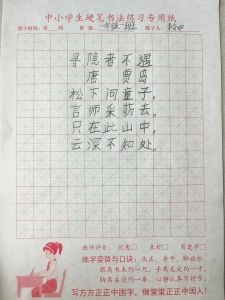 中小学生硬笔书法练习专用纸
练字时间: 第 周 班级: 一年级一班 姓名:
寻隐者不遇
唐 贾岛
松下问童子,
言师采药去。
只在此山中,
云深不知处。
教师评语: 优秀□ 良好□ 有进步□
练字姿势与口诀: 头正、身平、脚放松,
眼离书本约一尺, 手离笔尖约一寸,
胸离桌边约一拳, 心静认真写好字。
写方方正正中国字, 做堂堂正正中国人!